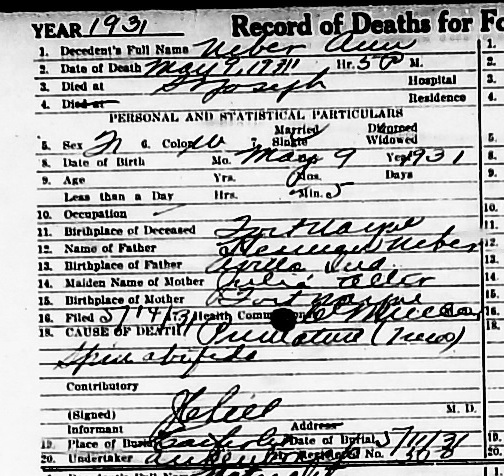 YEAR 1931 Record of Deaths for Fo
1. Decedent's Full Name Neber Ann
2. Date of Death May 9, 1931 Hr. 5 P M.
3. Died at St Joseph Hospital
4. Died at Residence
PERSONAL AND STATISTICAL PARTICULARS
Married Divorced
5. Sex 6. Color W 7. Single Widowed
8. Date of Birth Mo. May 9 Year 1931
9. Age Yrs. Mos. Days
Less than a Day Hrs. Min. 5
10. Occupation
11. Birthplace of Deceased Fort Wayne
12. Name of Father Neber
13. Birthplace of Father Ind
14. Maiden Name of Mother Julia
15. Birthplace of Mother Fort Wayne
16. Filed 5/14/31 17. Health Com
18. CAUSE OF DEATH Premature (7 mos)
Spina bifida
Contributory
(Signed) M. D.
Informant Address
19. Place of Burial Catholic Date of Burial 5/11/31
20. Undertaker No.